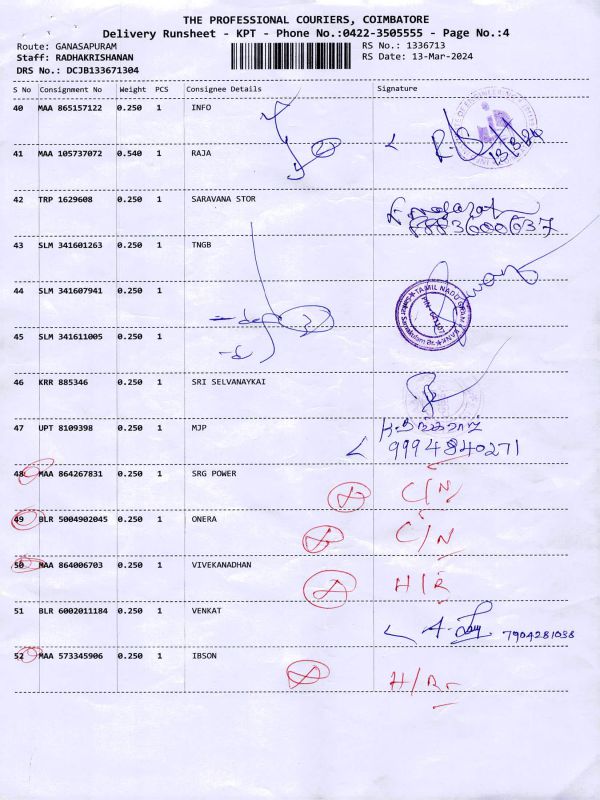 THE PROFESSIONAL COURIERS, COIMBATORE
Delivery Runsheet - KPT - Phone No.:0422-3505555 - Page No.:4
Route: GANASAPURAM
RS No.: 1336713
Staff: RADHAKRISHANAN
RS Date: 13-Mar-2024
DRS No.: DCJB133671304
S No Consignment No Weight PCS Consignee Details Signature
40 MAA 865157122 0.250 1 INFO
41 MAA 105737072 0.540 1 RAJA
42 TRP 1629608 0.250 1 SARAVANA STOR
43 SLM 341601263 0.250 1 TNGB
44 SLM 341607941 0.250 1
45 SLM 341611005 0.250 1
46 KRR 885346 0.250 1 SRI SELVANAYKAI
47 UPT 8109398 0.250 1 MJP
9994840271
48 MAA 864267831 0.250 1 SRG POWER C/N
49 BLR 5004902045 0.250 1 ONERA C/N
50 MAA 864006703 0.250 1 VIVEKANADHAN H/R
51 BLR 6002011184 0.250 1 VENKAT 7904281038
52 MAA 573345906 0.250 1 IBSON